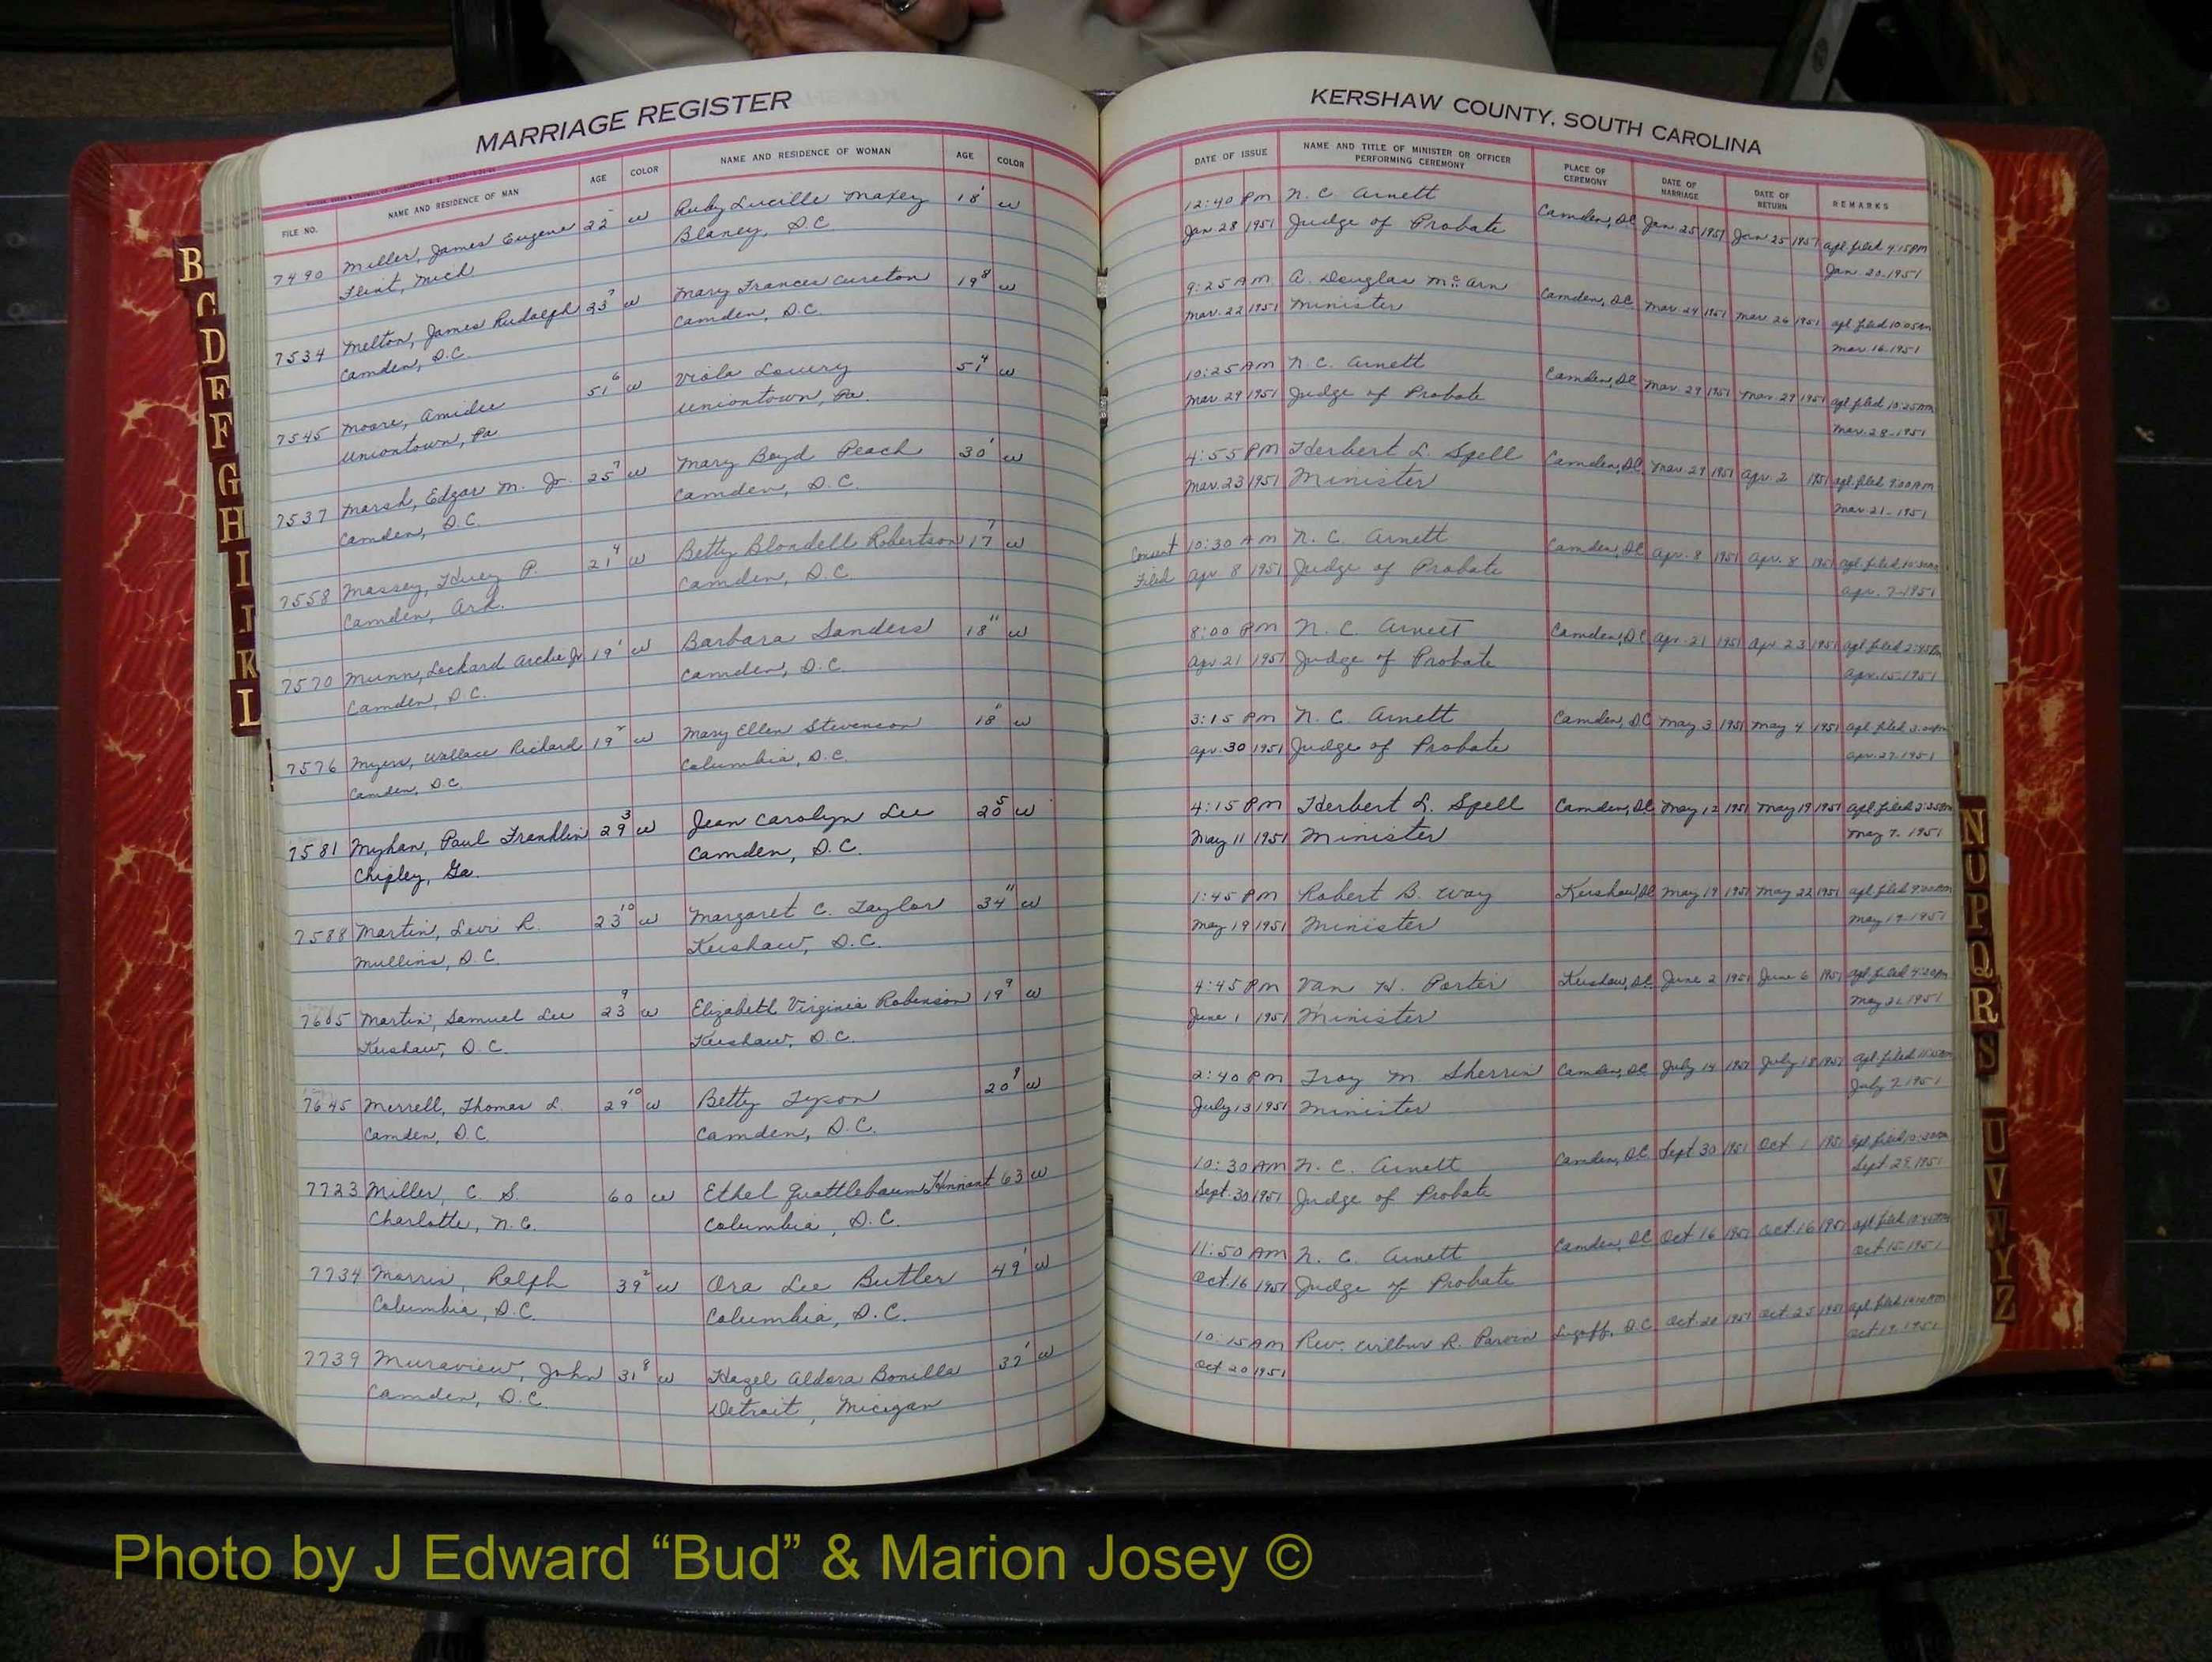 MARRIAGE REGISTER
FILE NO. NAME AND RESIDENCE OF MAN AGE COLOR NAME AND RESIDENCE OF WOMAN AGE COLOR
7490 Miller, James Eugene 22 w Ruby Lucille Maxey 18 w
Flint, Mich Blaney, S.C.
7534 Melton, James Rudolph 23 7 w Mary Frances Cureton 19 8 w
Camden, S.C. Camden, S.C.
7545 Moore, Amidee 51 6 w Viola Lowry 51 4 w
Uniontown, Pa Uniontown, Pa.
7537 Marsh, Edgar M. Jr. 25 7 w Mary Boyd Peach 30 1 w
Camden, S.C. Camden, S.C.
7558 Massey, Huey P. 21 4 w Betty Blondell Robertson 17 7 w
Camden, Ark. Camden, S.C.
7570 Munn, Lockard Archie Jr 19 1 w Barbara Sanders 18 11 w
Camden, S.C. Camden, S.C.
7576 Myers, Wallace Richard 19 2 w Mary Ellen Stevenson 18 w
Camden, S.C. Columbia, S.C.
7581 Myhan, Paul Franklin 29 3 w Jean Carolyn Lee 20 5 w
Chipley, Ga. Camden, S.C.
7588 Martin, Levi R. 23 10 w Margaret C. Taylor 34 11 w
Mullins, S.C. Kershaw, S.C.
7605 Martin, Samuel Lee 23 9 w Elizabeth Virginia Robinson 19 9 w
Kershaw, S.C. Kershaw, S.C.
7645 Merrell, Thomas L. 29 10 w Betty Tyson 20 9 w
Camden, S.C. Camden, S.C.
7723 Miller, C. S. 60 w Ethel Quattlebaum Hinnant 63 w
Charlotte, N.C. Columbia, S.C.
7734 Morris, Ralph 39 2 w Ora Lee Butler 49 1 w
Columbia, S.C. Columbia, S.C.
7739 Muraview, John 31 8 w Hazel Aldora Bonilla 37 1 w
Camden, S.C. Detroit, Micigan
KERSHAW COUNTY, SOUTH CAROLINA
DATE OF ISSUE NAME AND TITLE OF MINISTER OR OFFICER PERFORMING CEREMONY PLACE OF CEREMONY DATE OF MARRIAGE DATE OF RETURN REMARKS
12:40 Pm N. C. Arnett Camden, S.C. Jan 25 1951 Jan 25 1951 apl. filed 4:15 PM
Jan 28 1951 Judge of Probate Jan. 20-1951
9:25 Am A. Douglas McArn Camden, S.C. Mar 24 1951 Mar 26 1951 apl. filed 10:05 am
Mar. 22 1951 Minister Mar. 16-1951
10:25 Am N. C. Arnett Camden, S.C. Mar. 29 1951 Mar. 29 1951 apl. filed 10:25 am
Mar. 29 1951 Judge of Probate Mar. 28-1951
4:55 Pm Herbert L. Spell Camden, S.C. Mar 29 1951 Apr. 2 1951 apl. filed 9:00 am
Mar. 23 1951 Minister Mar. 21-1951
Consent 10:30 Am N. C. Arnett Camden, S.C. Apr. 8 1951 Apr. 8 1951 apl. filed
Filed Apr 8 1951 Judge of Probate Apr. 7-1951
8:00 Pm N. C. Arnett Camden, S.C. Apr. 21 1951 Apr 23 1951 apl. filed 2:45 Pm
Apr 21 1951 Judge of Probate Apr. 15-1951
3:15 Pm N. C. Arnett Camden, S.C. May 3 1951 May 4 1951 apl. filed
Apr. 30 1951 Judge of Probate Apr. 27-1951
4:15 Pm Herbert L. Spell Camden, S.C. May 12 1951 May 19 1951 apl. filed
May 11 1951 Minister May 7-1951
1:45 Pm Robert B. Way Kershaw, S.C. May 19 1951 May 22 1951 apl. filed
May 19 1951 Minister May 1951
4:45 Pm Van H. Porter Kershaw, S.C. June 2 1951 June 6 1951 apl. filed 4:20 Pm
June 1 1951 Minister May 1951
2:40 Pm Troy M. Sherrin Camden, S.C. July 14 1951 July 18 1951 apl. filed
July 13 1951 Minister July 2 1951
10:30 Am N. C. Arnett Camden, S.C. Sept 30 1951 Oct 1 1951 apl. filed
Sept. 30 1951 Judge of Probate Sept 29, 1951
11:50 Am N. C. Arnett Camden, S.C. Oct 16 1951 Oct. 16 1951 apl. filed
Oct. 16 1951 Judge of Probate Oct 15-1951
10:15 Am Rev. Wilbur R. Parvin Lugoff, S.C. Oct. 20 1951 Oct 25 1951 apl. filed
Oct 20 1951 Oct 19-1951
B
C
D
E
F
G
H
I
J
K
L
N
O
P
Q
R
S
U
V
W
Y
Z
Photo by J Edward “Bud” & Marion Josey ©